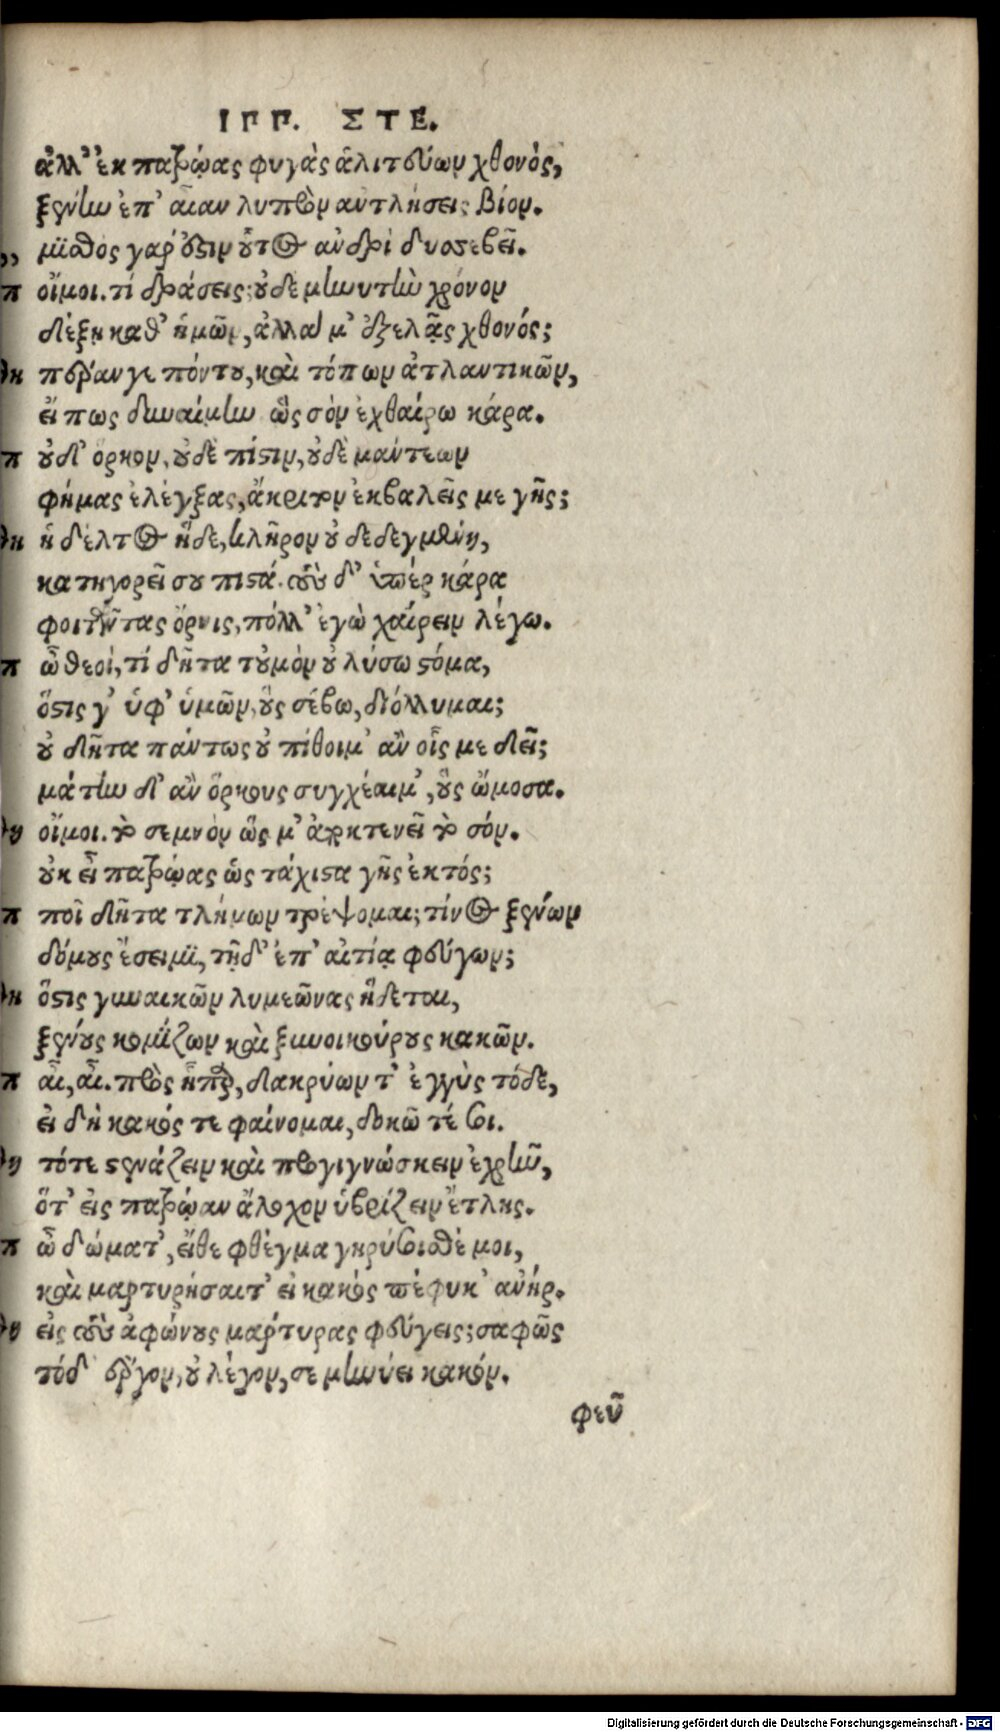 ΙΠΠ. ΣΤΕ.
ἀλλ' ἐκ πατρώας φυγὰς ἀλιτεύων χθονὸς,
ξένην ἐπ' αἶαν λυπρὸν αντλήσεις βίον.
,, μισθὸς γαρ ὅστιν οὗτος ανδρὶ δυσσεβεῖ.
π οἴμοι. τί δράσεις; οὐδε μηνυτὴν χρόνον
δέξῃ καθ' ἡμῶν, ἀλλά μ' ἐξελᾷς χθονός;
θη πέραν γε πόντου, καὶ τόπων ἀτλαντικῶν,
εἴ πως δυναίμην ὧς σὸν ἐχθαίρω κάρα.
π οὐδ' ὅρκον, οὐδὲ πίστιν, οὐδὲ μάντεων
φήμας ἐλέγξας, ἄκριτον ἐκβαλεῖς με γῆς;
θη ἡ δέλτος ἥδε, κλῆρον οὐ δεδεγμένη,
κατηγορεῖ σου πιστά. τοὺς δ' ὑπὲρ κάρα
φοιτῶντας ὄρνις, πόλλ' ἐγὼ χαίρειν λέγω.
π ὦ θεοὶ, τί δῆτα τοὐμὸν οὐ λύσω στόμα,
ὅστις γ' ὑφ' ὑμῶν, οὓς σέβω, διόλλυμαι;
οὐ δῆτα πάντως οὐ πίθοιμ' ἂν οἷς με δεῖ;
μάτην δ' ἂν ὅρκους συγχέαιμ', οὓς ὤμοσα.
θη οἴμοι. τὸ σεμνὸν ὥς μ' ἀποκτενεῖ τὸ σόν.
οὐκ εἶ πατρώας ὡς τάχιστα γῆς ἐκτός;
π ποῖ δῆτα τλήμων τρέψομαι; τίνος ξένων
δόμους ἔσειμι, τῇδ' ἐπ' αἰτίᾳ φεύγων;
θη ὅστις γυναικῶν λυμεῶνας ἥδεται,
ξένους κομίζων καὶ ξυνοικούρους κακῶν.
π αἶ, αἶ. πρὸς ἧπαρ, δακρύων τ' ἐγγὺς τόδε,
ει δὴ κακός τε φαίνομαι, δοκῶ τέ σοι.
θη τότε στενάζειν καὶ προγιγνώσκειν ἐχρῆν,
ὅτ' εἰς πατρῴαν ἄλοχον ὑβρίζειν ἔτλης.
π ὦ δώματ', εἴθε φθέγμα γηρύσισθέ μοι,
καὶ μαρτυρήσαιτ' εἰ κακὸς πέφυκ' ανήρ.
θη εἰς τοὺς ἀφώνους μάρτυρας φεύγεις; σαφῶς
τόδ' ἔργον, οὐ λέγον, σε μηνύει κακόν.
φεῦ
Digitalisierung gefördert durch die Deutsche Forschungsgemeinschaft - DFG